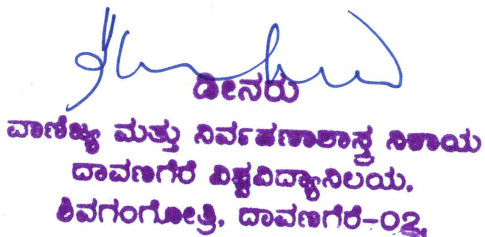 ಡೀನರು
ವಾಣಿಜ್ಯ ಮತ್ತು ನಿರ್ವಹಣಾಶಾಸ್ತ್ರ ನಿಕಾಯ
ದಾವಣಗೆರೆ ವಿಶ್ವವಿದ್ಯಾನಿಲಯ,
ಶಿವಗಂಗೋತ್ರಿ, ದಾವಣಗೆರೆ-02